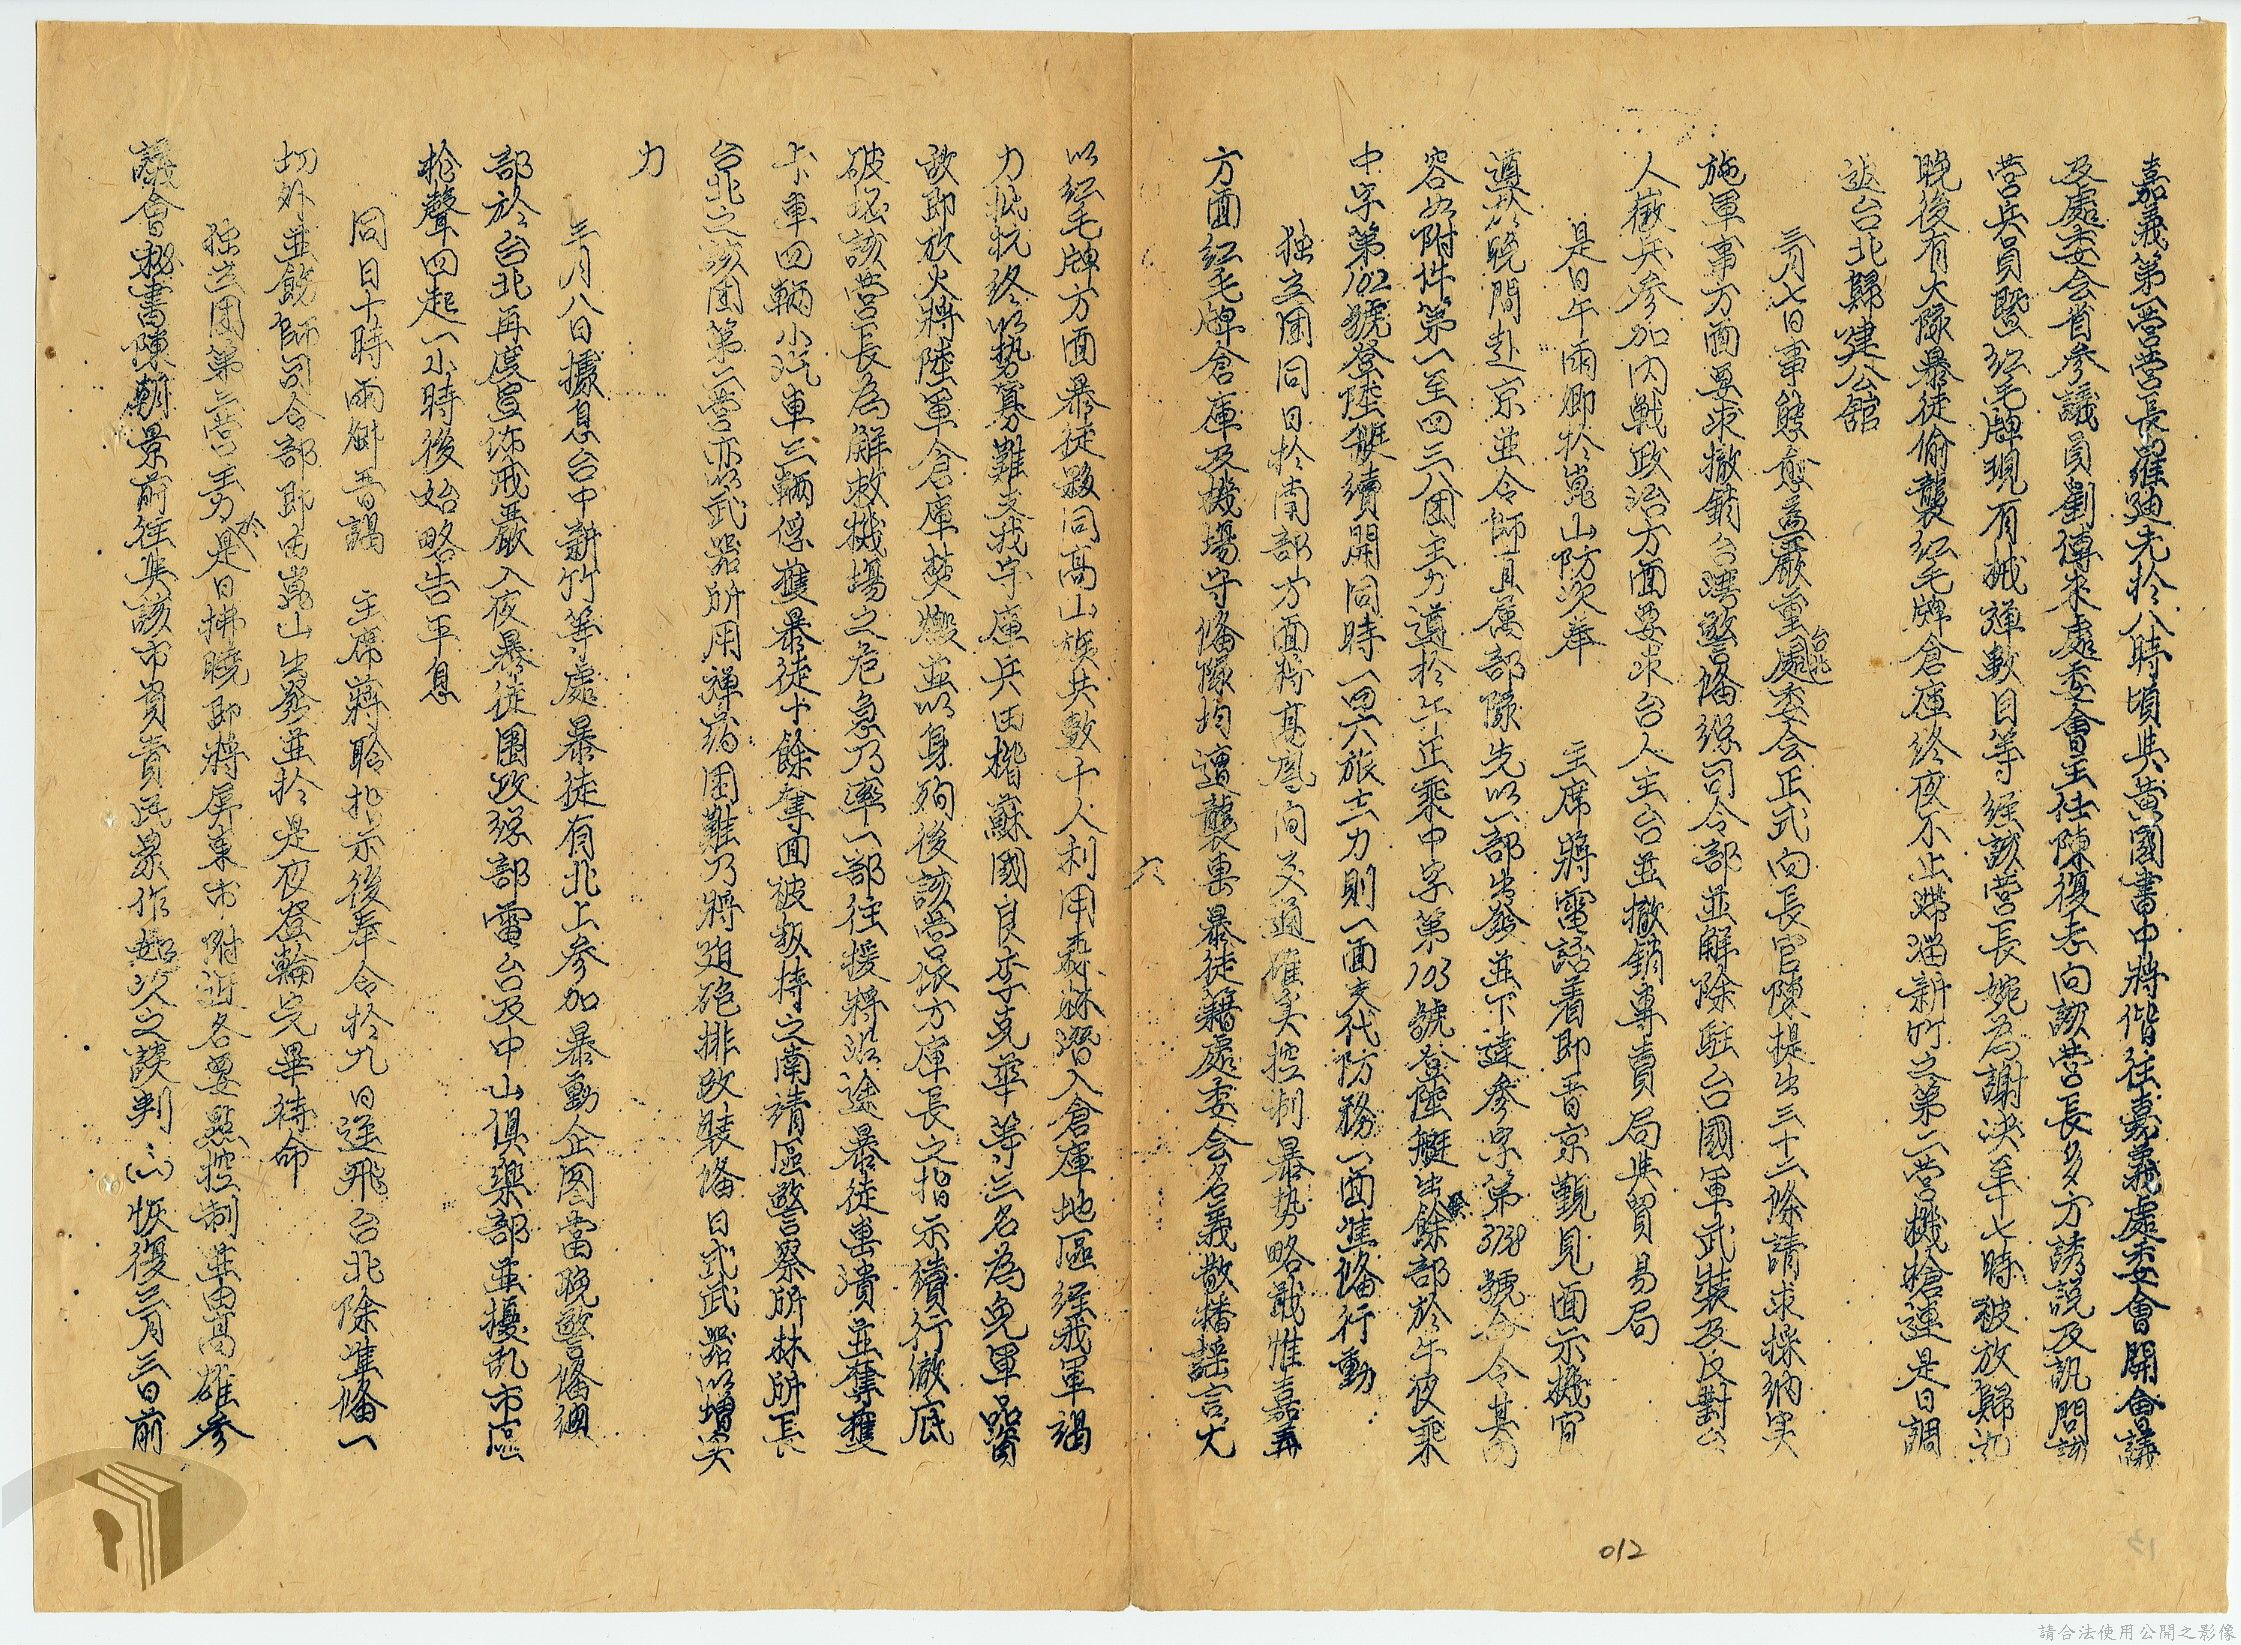 嘉義第一營營長羅迪光於八時頃與黃國書中將偕往嘉義處委會開會議
及處委会省參議員劉傳來處委會主任陳復志向該營長多方誘説及訊問該
営兵員暨紅毛牌現有械弹數目等經該営長婉為謝決至十七時被放歸迄
晚後有大隊暴徒偷襲紅毛牌倉庫終夜不止滯淄新竹之第二営機槍連是日調
返台北歸建公館
三月七日事態愈益嚴重台北處委会正式向長官陳提出三十二條請求採納実
施軍事方面要求撤銷台湾警俻總司令部並解除駐台國軍武裝及反對台
人徵兵参加内戦政治方面要求台人主台並撤銷專賣局與貿易局
是日午雨卿於嵬山防次奉　主席蔣電話着即晋京覲見面示機宜
遵於晚間赴京並令師直属部隊先以一部出發並下達參字第3738號命令其內
容如附件第一至四三八团主力遵於午正乘中字第103號登陸艇出發餘部於午夜乘
中字第102號登陸艇續開同時一四六旅主力則一面交代防務一面準俻行動
独立团同日於南部方面將高鳳间交通確実控制暴势略戢惟嘉義
方面紅毛牌倉庫及機場守俻隊均遭襲擊暴徒藉處委会名義散播謠言尤
六
以紅毛牌方面暴徒夥同高山族共數千人利用森林潜入倉庫地區經我軍竭
力抵抗终以势寡難支我守庫兵田楷蘇國良李克華等三名為免軍品資
敌即放火將陸軍倉庫焚燬並以身殉後該営依方庫長之指示續行徹底
破壞該営長為解救機場之危急乃率一部往援將沿途暴徒擊潰並奪獲
卡車四輛小汽車三輛俘獲暴徒十餘奪回被扳持之南靖區警察所林所長
台北之該团第二营亦以武器所用弹药困難乃將迫砲排改裝俻日式武器以增实
力
三月八日據息台中新竹等處暴徒有北上参加暴動企图當晚警俻總
部於台北再度宣佈戒嚴入夜暴徒圍攻總部電台及中山俱樂部並擾乱市區
枪聲四起一小時後始略告平息
同日十時雨卿晋謁　主席蔣聆指示後奉令於九日逕飛台北除準俻一
切外並飭師司令部即由嵩山出發並於是夜登輪完畢待命
独立团第三营主力於是日拂曉即將屏東市附近各要點控制並由高雄參
議會秘書陳朝景前往與該市負責民眾作如次之談判：(一)恢復三月三日前
012
請合法使用公開之影像